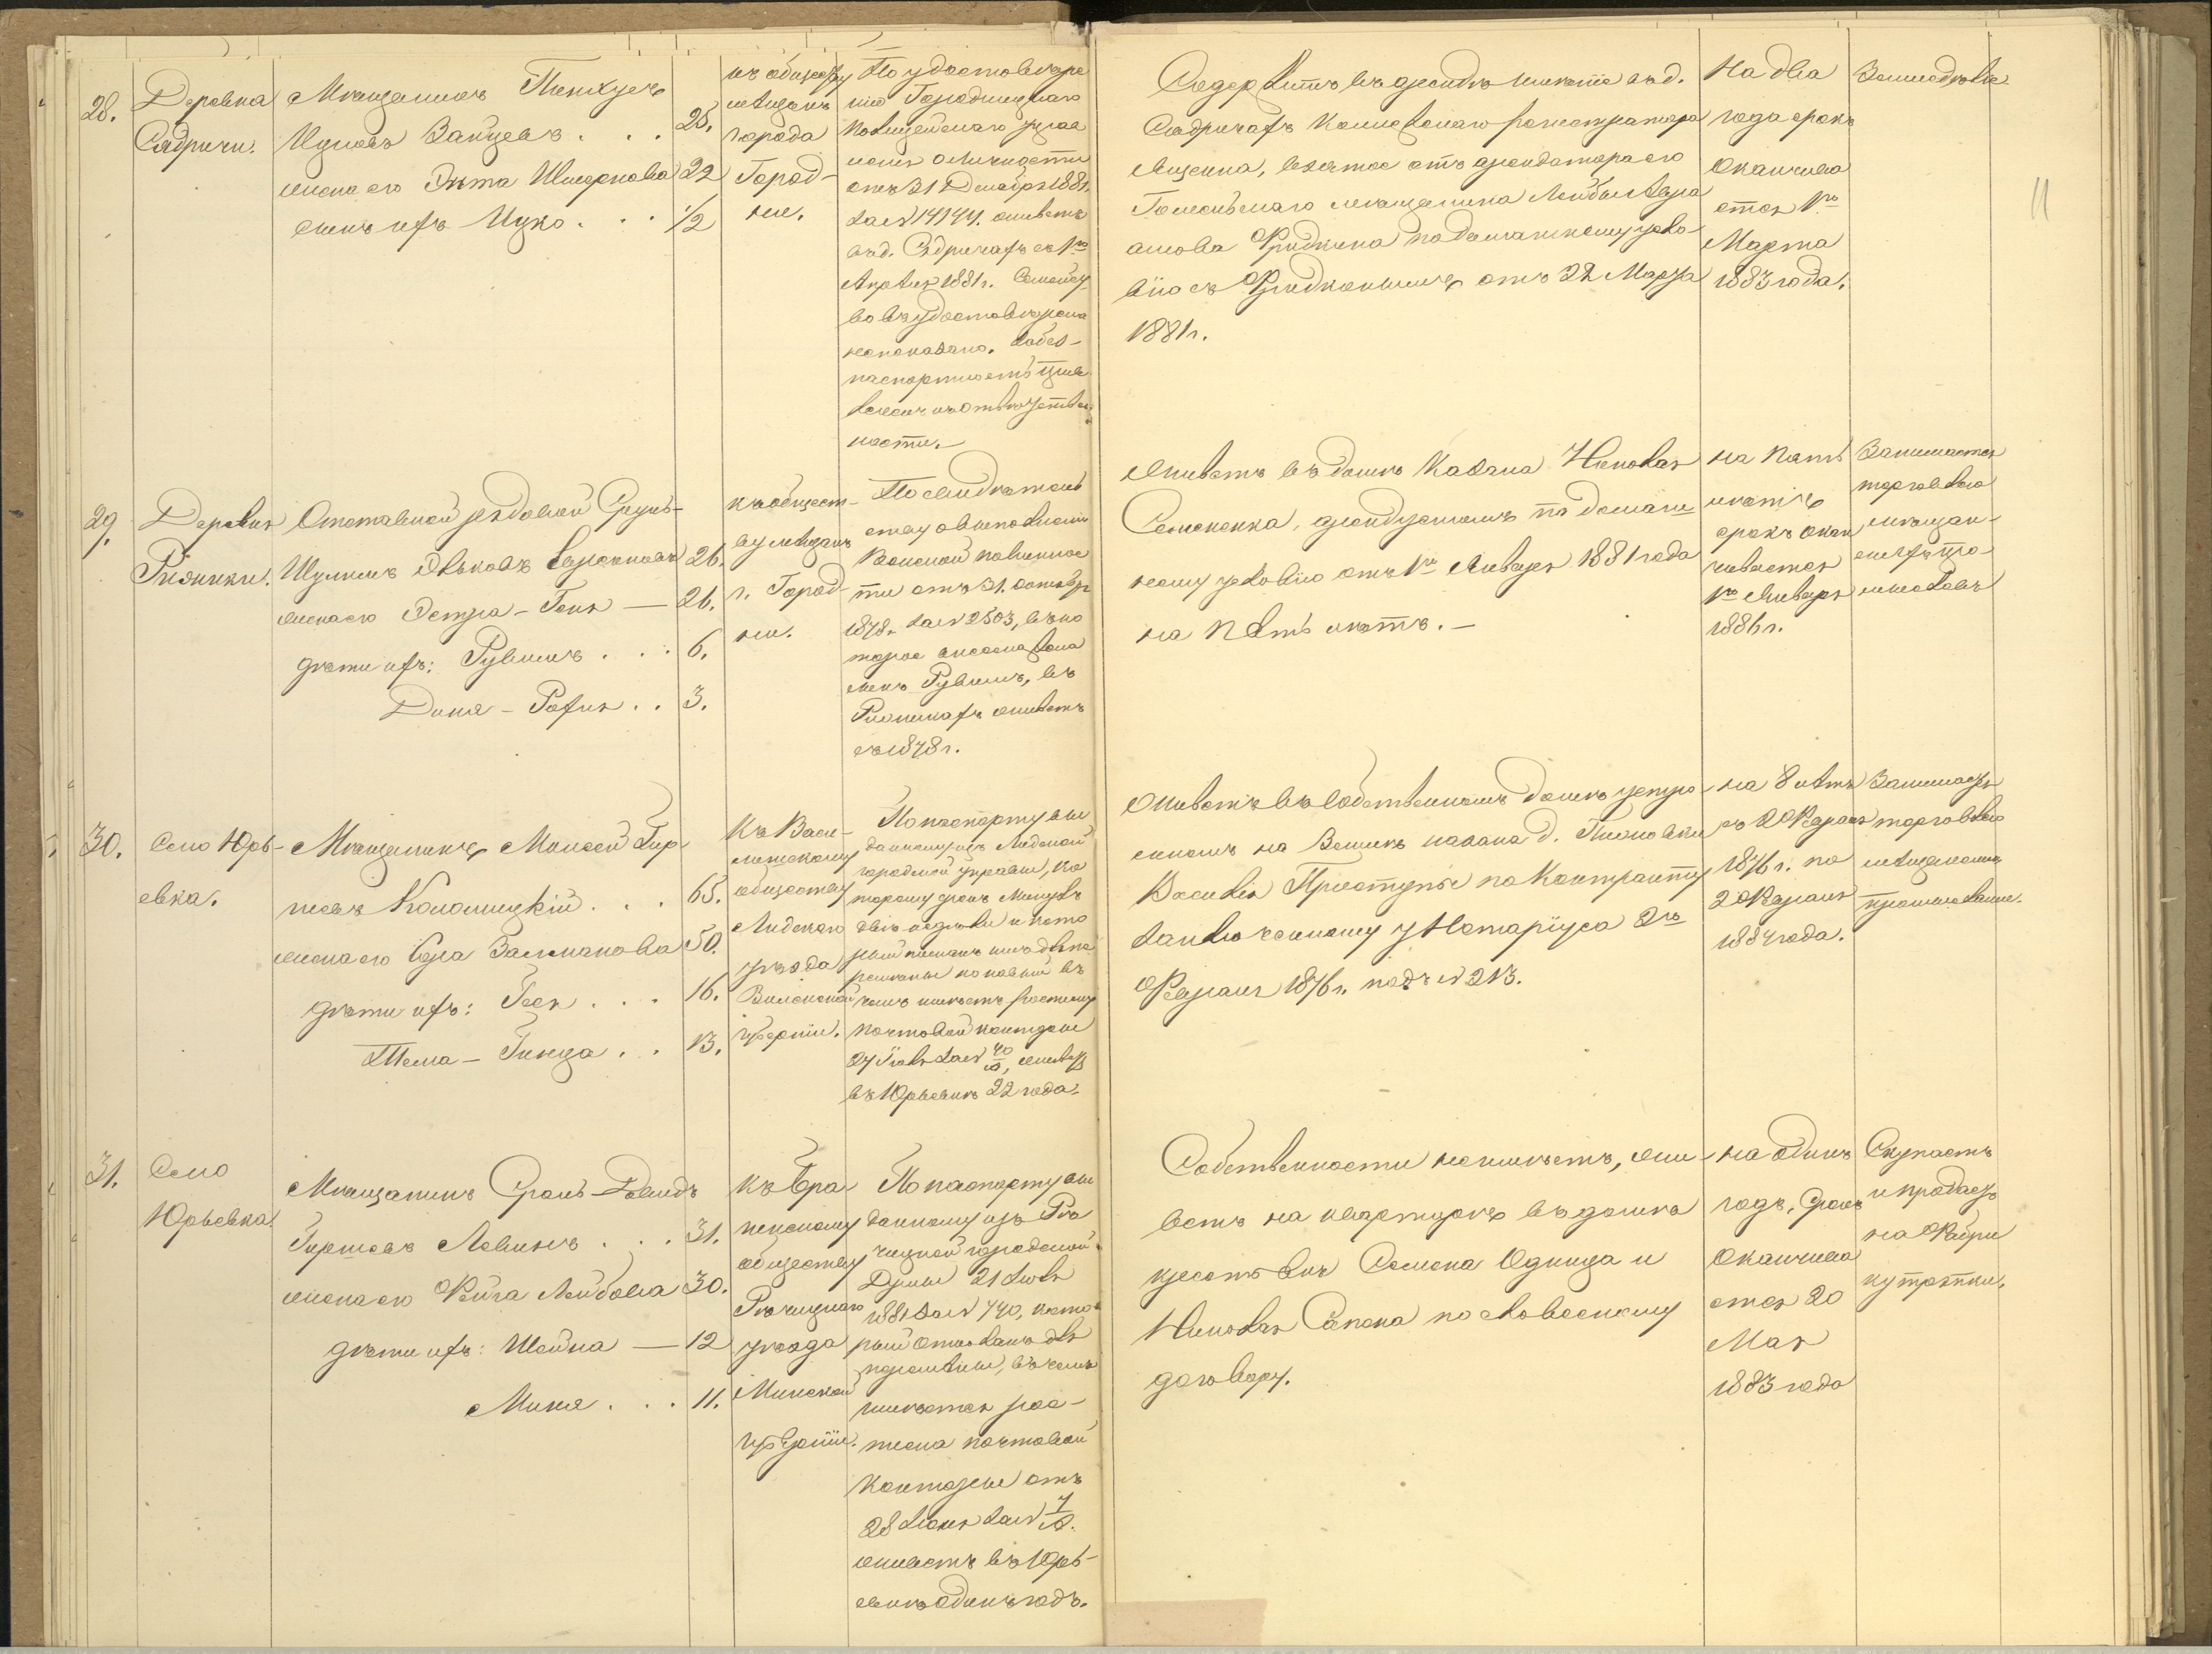 28.
Деревня
Сядричи.
Мѣщанинъ Пинхусъ
Ицковъ Зайцевъ . . . 28.
жена его Эшта Шмеркова 22
сынъ ихъ Ицко . . . 1/2
къ обществу
мѣщанъ
города
Город-
ни.
По удостовѣре
нію Городницкаго
полицейскаго управ
ленія о личности
отъ 31 Декабря 1881.
за № 14144. живетъ
въ д. Сядричахъ съ 1го
Апрѣля 1881 г. Семейст
во въ удостовѣреніи
непоказано. за без-
паспортность прив
леченъ къ отвѣтствен
ности.
Содержитъ въ арендѣ имѣніе въ д.
Сядричахъ Коллежскаго регистратора
Яценка, взятое отъ арендатора его
Гомельскаго мѣщанина Лейбы Авра
амова Фридкина по домашнему усло
вію съ Фридкинымъ отъ 22 Марта
1881 г.
На два
года срокъ
оканчива
ется 1го
Марта
1883 года.
Земледѣліе
11
29.
Деревня
Рижики.
Отставной рядовой Сруль-
Шулимъ Яковъ 26.
жена его Эстра-Геня — 26.
дѣти ихъ: Рувинъ . . . 6.
Доня-Рохля . . 3.
къ общест-
ву мѣщанъ
г. Город-
ни.
По свидѣтель
ству о выполненіи
Воинской повиннос
ти отъ 31. октября
1878. за № 2503, въ ко
торое внесена жена
сынъ Рувинъ, въ
живетъ
съ 1878 г.
Живетъ въ домѣ казака Николая
Семененка, арендуемомъ по домаш
нему условію отъ 1го Января 1881 года
на пять лѣтъ. —
на пять
лѣтъ
срокъ окан
чивается
1го Января
1886 г.
Занимается
торговлею
мѣщан-
скимъ про-
мысломъ
30.
Село Юрь-
евка.
Мѣщанинъ Моисей Гир
шевъ Коломицкій . . . 65.
жена его Сора Залманова 50.
дѣти ихъ: Гися . . . 16.
Тема-Гинда . . 13.
Къ Васи-
лишскому
обществу
Лидскаго
уѣзда
Виленской
губерніи.
По паспорту вы
данному изъ Лидской
городской управы, ко
торому срокъ минулъ
двѣ недѣли и кото
рый
новый въ
чемъ имѣетъ росписку
почтовой конторы
27 Іюля за № 40, живетъ
въ Юрьевкѣ 22 года.
Живетъ въ собственномъ домѣ устро
енномъ на Землѣ казака д.
Василія Приступы по контракту
заключенному у Нотаріуса 2го
Февраля 1876 г. подъ № 213.
на 8 лѣтъ
съ 2 Февраля
1876 г. по
2 Февраля
1884 года.
Занимаетъ
торговлею
мѣщанскимъ
промысломъ.
31.
Село
Юрьевка.
Мѣщанинъ Сроль-Довидъ
Гиршевъ Левинъ . . . 31.
жена его Фейга Лейбова 30.
дѣти ихъ: Шейна — 12
Миня . . . 11.
къ Бра
гинскому
обществу
Рѣчицкаго
уѣзда
Минской
губерніи.
По паспорту вы
данному изъ Рѣ
чицкой городской
Думы 21 Іюля
1881 за № 740, кото
рый отосланъ для
перемѣны, въ чемъ
имѣется рос-
писка почтовой
конторы отъ
28 Іюня за № 7.
живетъ въ Юрь-
евкѣ одинъ годъ.
Собственности неимѣетъ, жи
ветъ на квартирѣ въ домѣ
крестьянъ Семена Одинца и
Николая Сапена по словесному
договору.
на одинъ
годъ, срокъ
оканчива
ется 20
Мая
1883 года
Скупаетъ
и продаетъ
на фабри
ку тряпки.